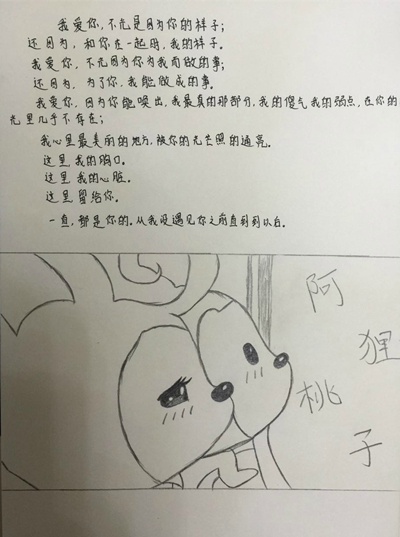 我爱你,不光是因为你的样子;
还因为,和你在一起时,我的样子。
我爱你,不光因为你为我而做的事;
还因为,为了你,我能做成的事。
我爱你,因为你能唤出,我最真的那部分,我的傻气我的弱点,在你的
光里几乎不存在;
我心里最美丽的地方,被你的光芒照的通亮。
这里我的胸口。
这里我的心脏。
这里留给你。
一直,都是你的。从我没遇见你之前直到到以后。
阿狸
桃子